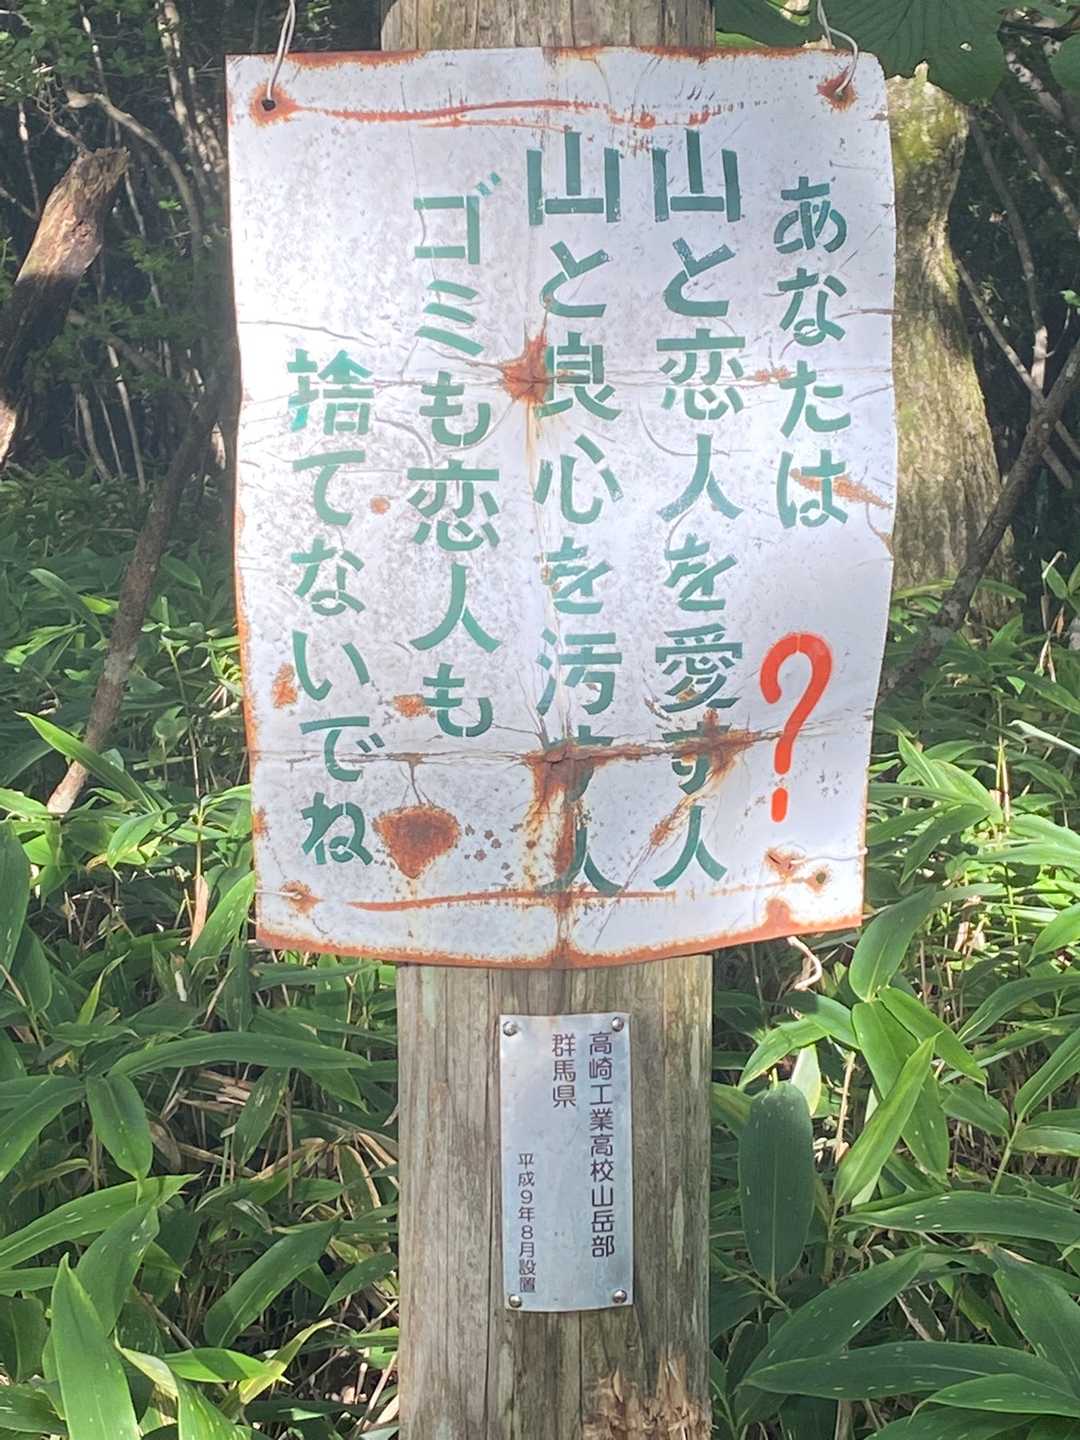 あなたは?
山と恋人を愛す人
山と良心を汚す人
ゴミも恋人も
捨てないでね
高崎工業高校山岳部
群馬県
平成9年8月設置